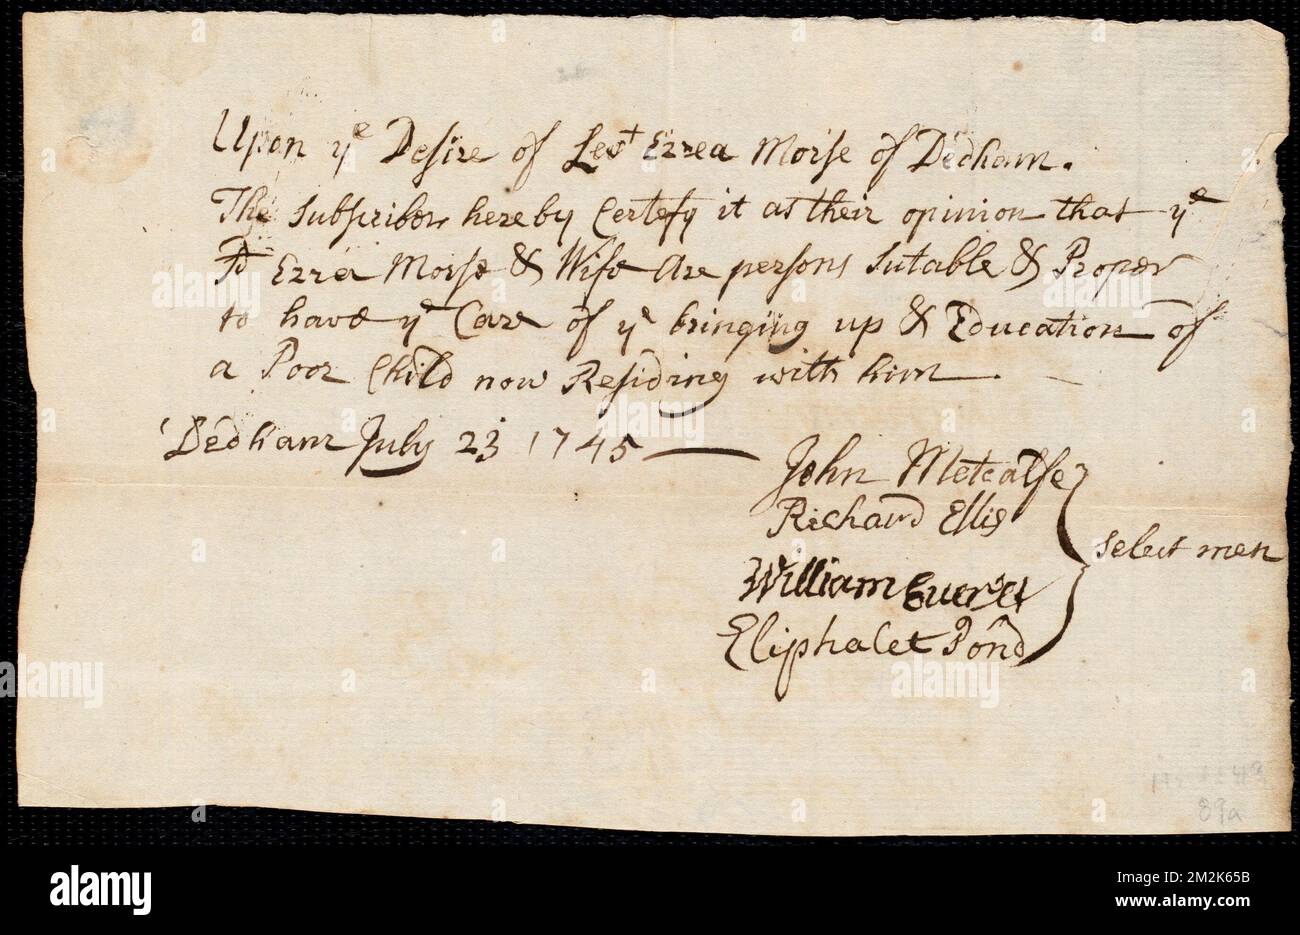 Upon yᵉ Desire of Levᵗ Ezrea Morse of Dedham.
The subscribers hereby Certefy it as their opinion that yᵉ
sᵈ Ezrea Morse & Wife Are persons sutable & Proper
to have yᵉ Care of yᵉ bringing up & Education of
a Poor Child now Residing with him
Dedham July 23 1745
John Metcalfe
Richard Ellis
William Everit
Eliphalet Pond
select men
89a
alamy
Image ID: 2M2K65B
www.alamy.com